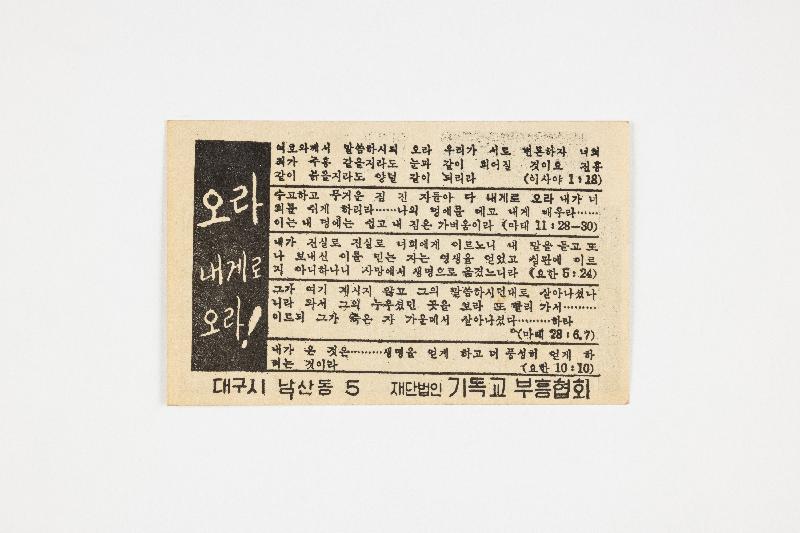 오라
내게로
오라!
여호와께서 말씀하시되 오라 우리가 서로 변론하자 너희
죄가 주홍 같을지라도 눈과 같이 희어질 것이요 진홍
같이 붉을지라도 양털 같이 되리라 (이사야 1:18)
수고하고 무거운 짐 진 자들아 다 내게로 오라 내가 너
희를 쉬게 하리라……나의 멍에를 메고 내게 배우라……
이는 내 멍에는 쉽고 내 짐은 가벼움이라 (마태 11:28—30)
내가 진실로 진실로 너희에게 이르노니 내 말을 듣고 또
나 보내신 이를 믿는 자는 영생을 얻었고 심판에 이르
지 아니하나니 사망에서 생명으로 옮겼느니라 (요한 5:24)
그가 여기 계시지 않고 그의 말씀하시던대로 살아나셨나
니라 와서 그의 누우셨던 곳을 보라 또 빨리 가서………
이르되 그가 죽은 자 가운데서 살아나셨다………하라
(마태 28:6,7)
내가 온 것은………생명을 얻게 하고 더 풍성히 얻게 하
려는 것이라 (요한 10:10)
대구시 남산동 5 재단법인 기독교 부흥협회